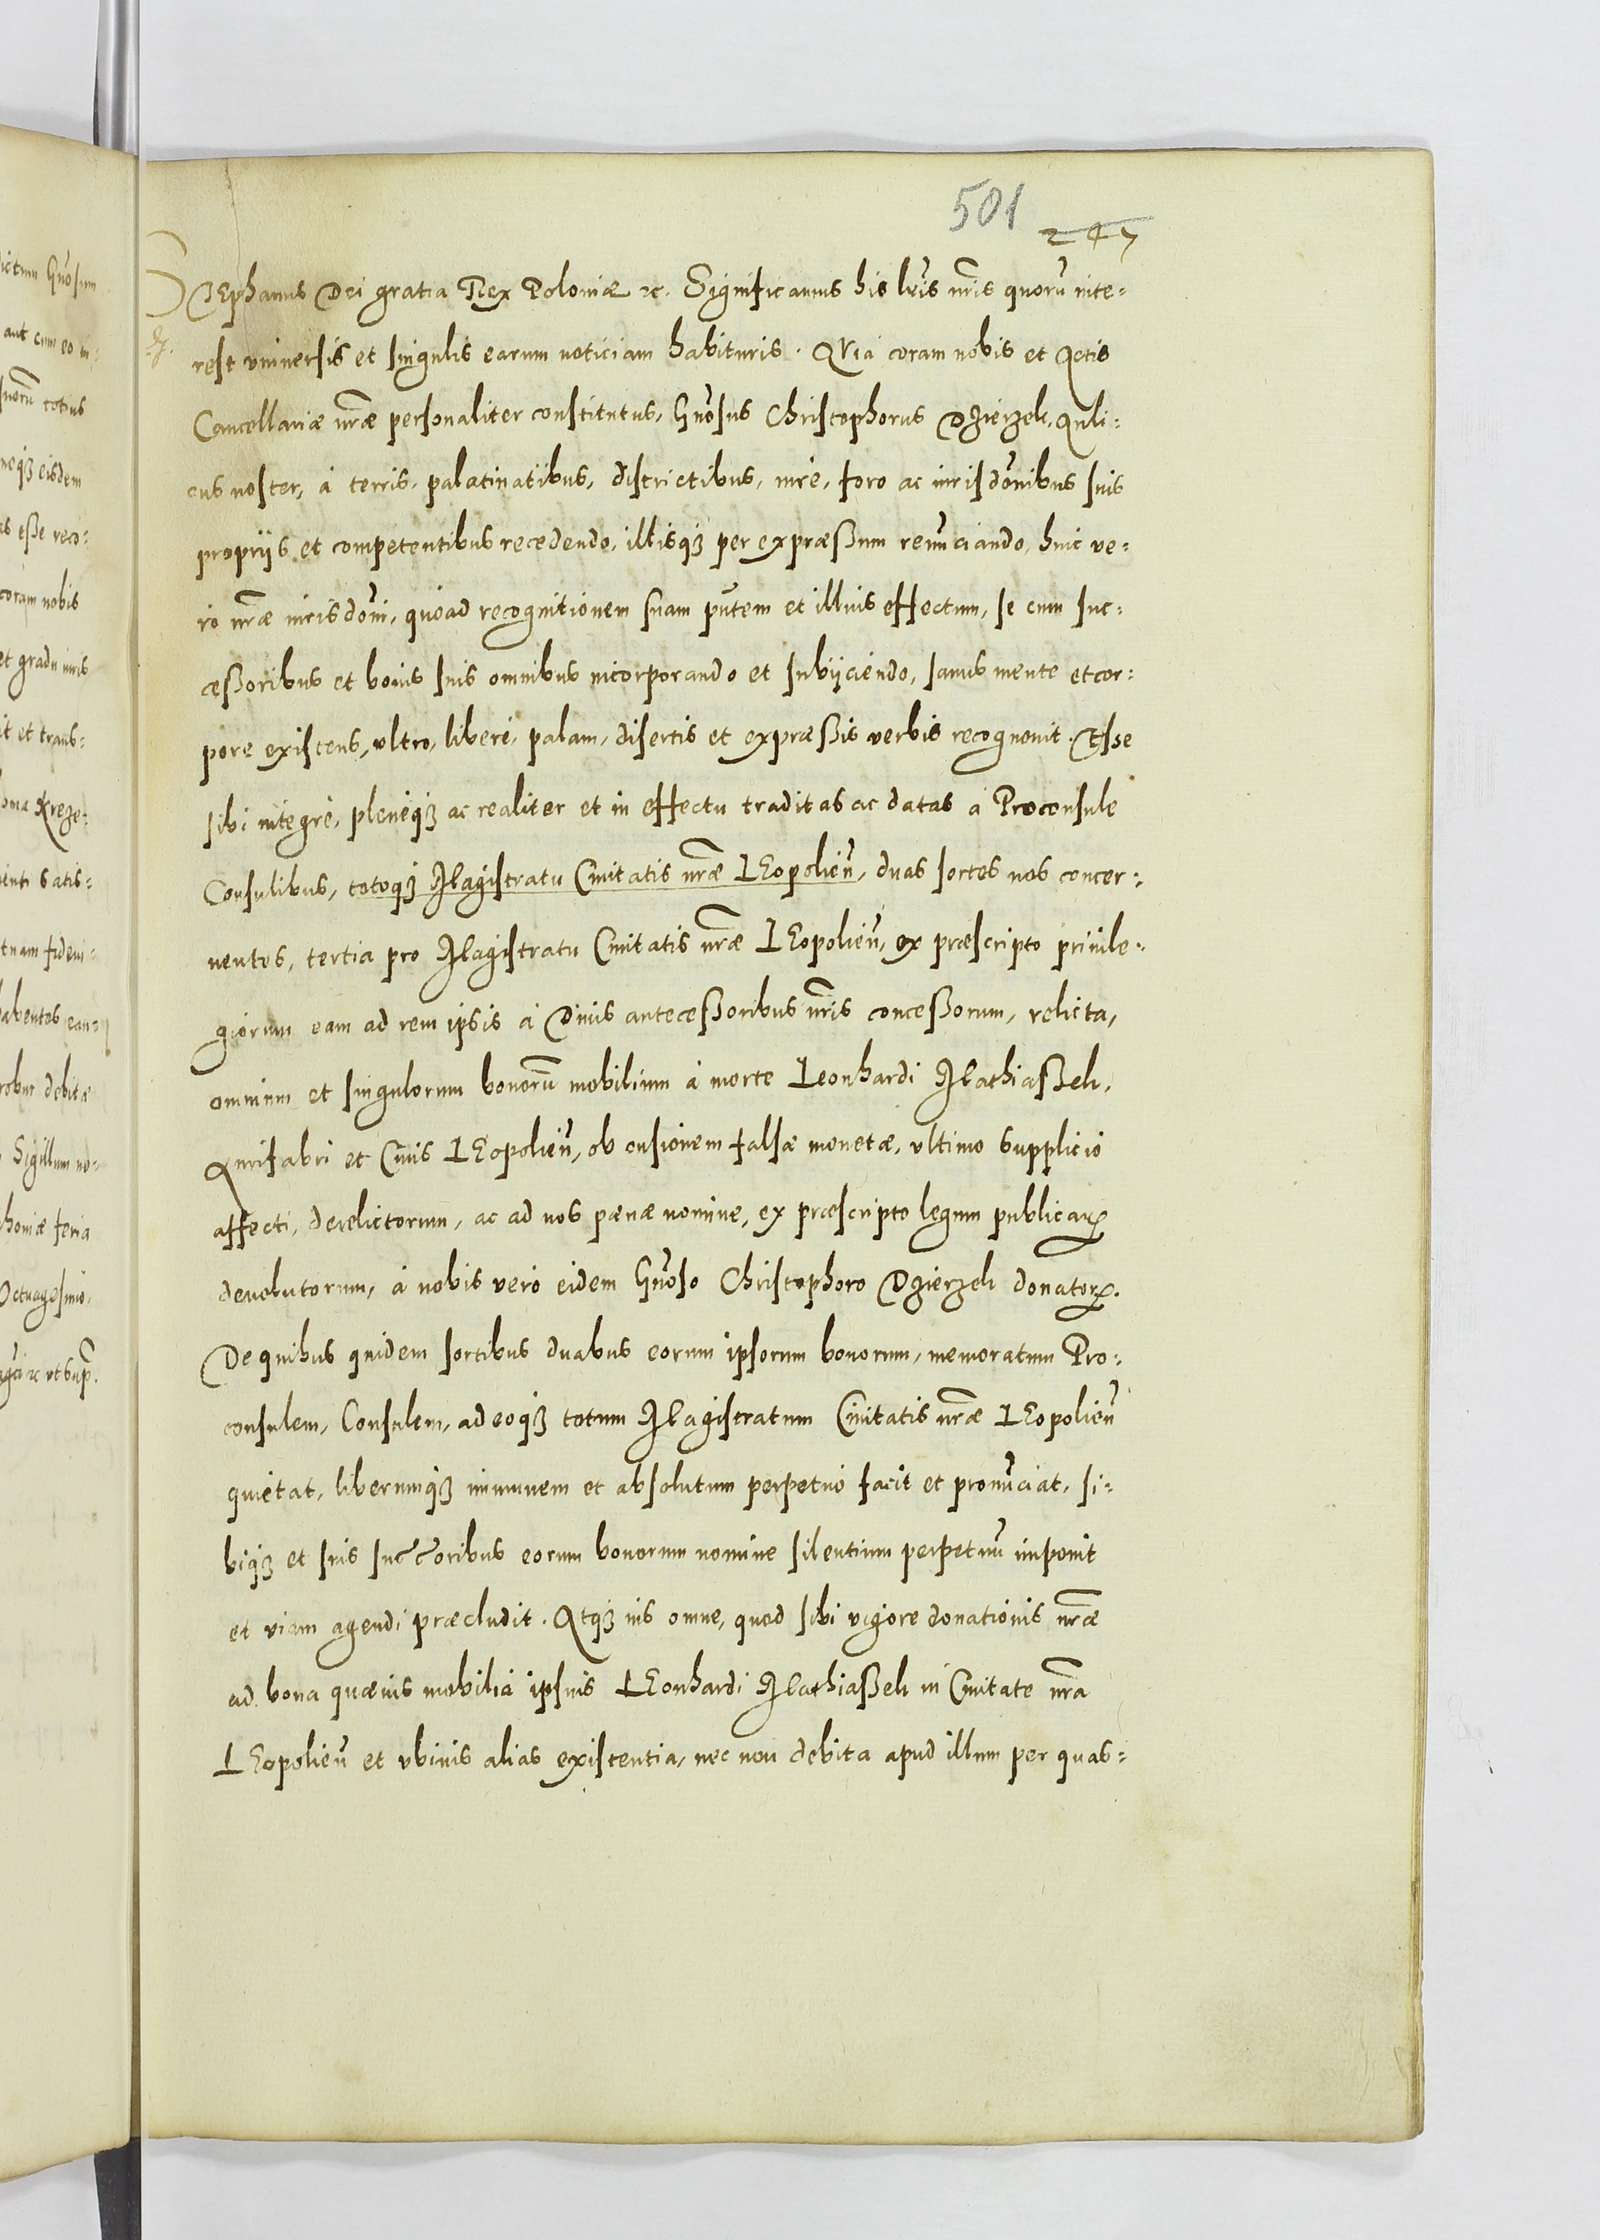 501
247
STEphanus Dei gratia Rex Poloniæ ꝛc. Significamus his lr̃is nr̃is quorũ inte-
rest vniuersis et singulis earum noticiam habituris. QVia coram nobis et Actis
Cancellariæ nr̃æ personaliter constitutus, Gñosus Christophorus Dzierzek, Auli-
cus noster, à terris, palatinatibus, districtibus, iure, foro ac iurisdõnibus suis
proprijs et competentibus recedendo, illisqȝ per expræßum renũciando, huic ve-
ro nr̃æ iurisdõni, quoad recognitionem suam pñtem et illius effectum, se cum suc-
ceßoribus et bonis suis omnibus incorporando et subijciendo, sanus mente et cor-
pore existens, vltro, liberè, palam, disertis et expræßis verbis recognouit. Esse
sibi integrè, plenèqȝ ac realiter et in effectu traditas ac datas à Proconsule
Consulibus, totoqȝ Magistratu Ciuitatis nr̃æ LEopolieñ, duas sortes nos concer-
nentes, tertia pro Magistratu Ciuitatis nr̃æ LEopolieñ, ex præscripto priuile-
giorum eam ad rem ipsis à Diuis anteceßoribus nr̃is conceßorum, relicta,
omnium et singulorum bonorũ mobilium à morte Leonhardi Mathiaßek,
Aurifabri et Ciuis LEopolieñ, ob cusionem falsæ monetæ, vltimo supplicio
affecti, derelictorum, ac ad nos pænæ nomine, ex præscripto legum publicarꝝ
deuolutorum, à nobis verò eidem Gñoso Christophoro Dzierzek donatorꝝ.
De quibus quidem sortibus duabus eorum ipsorum bonorum, memoratum Pro-
consulem, Consulem, adeoqȝ totum Magistratum Ciuitatis nr̃æ LEopolieñ
quietat, liberumqȝ immunem et absolutum perpetuò facit et pronũciat, si-
biqȝ et suis succ̃oribus eorum bonorum nomine silentium perpetuũ imponit
et viam agendi præcludit. Atqȝ ius omne, quod sibi vigore donationis nr̃æ
ad bona quæuis mobilia ipsius LEonhardi Mathiaßek in Ciuitate nr̃a
LEopolieñ et vbiuis alias existentia, nec non debita apud illum per quas-